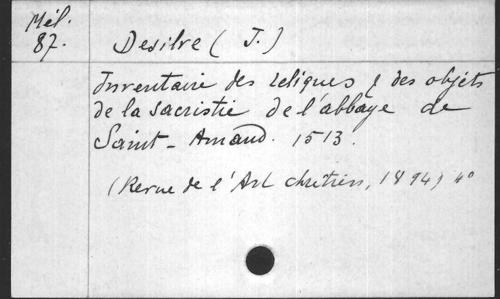 Mél.
87.
Desilve (J.)
Inventaire des reliques & des objets
de la sacristie de l'abbaye de
Saint-Amand. 1513.
(Revue de l'Art chrétien, 1894) 4°